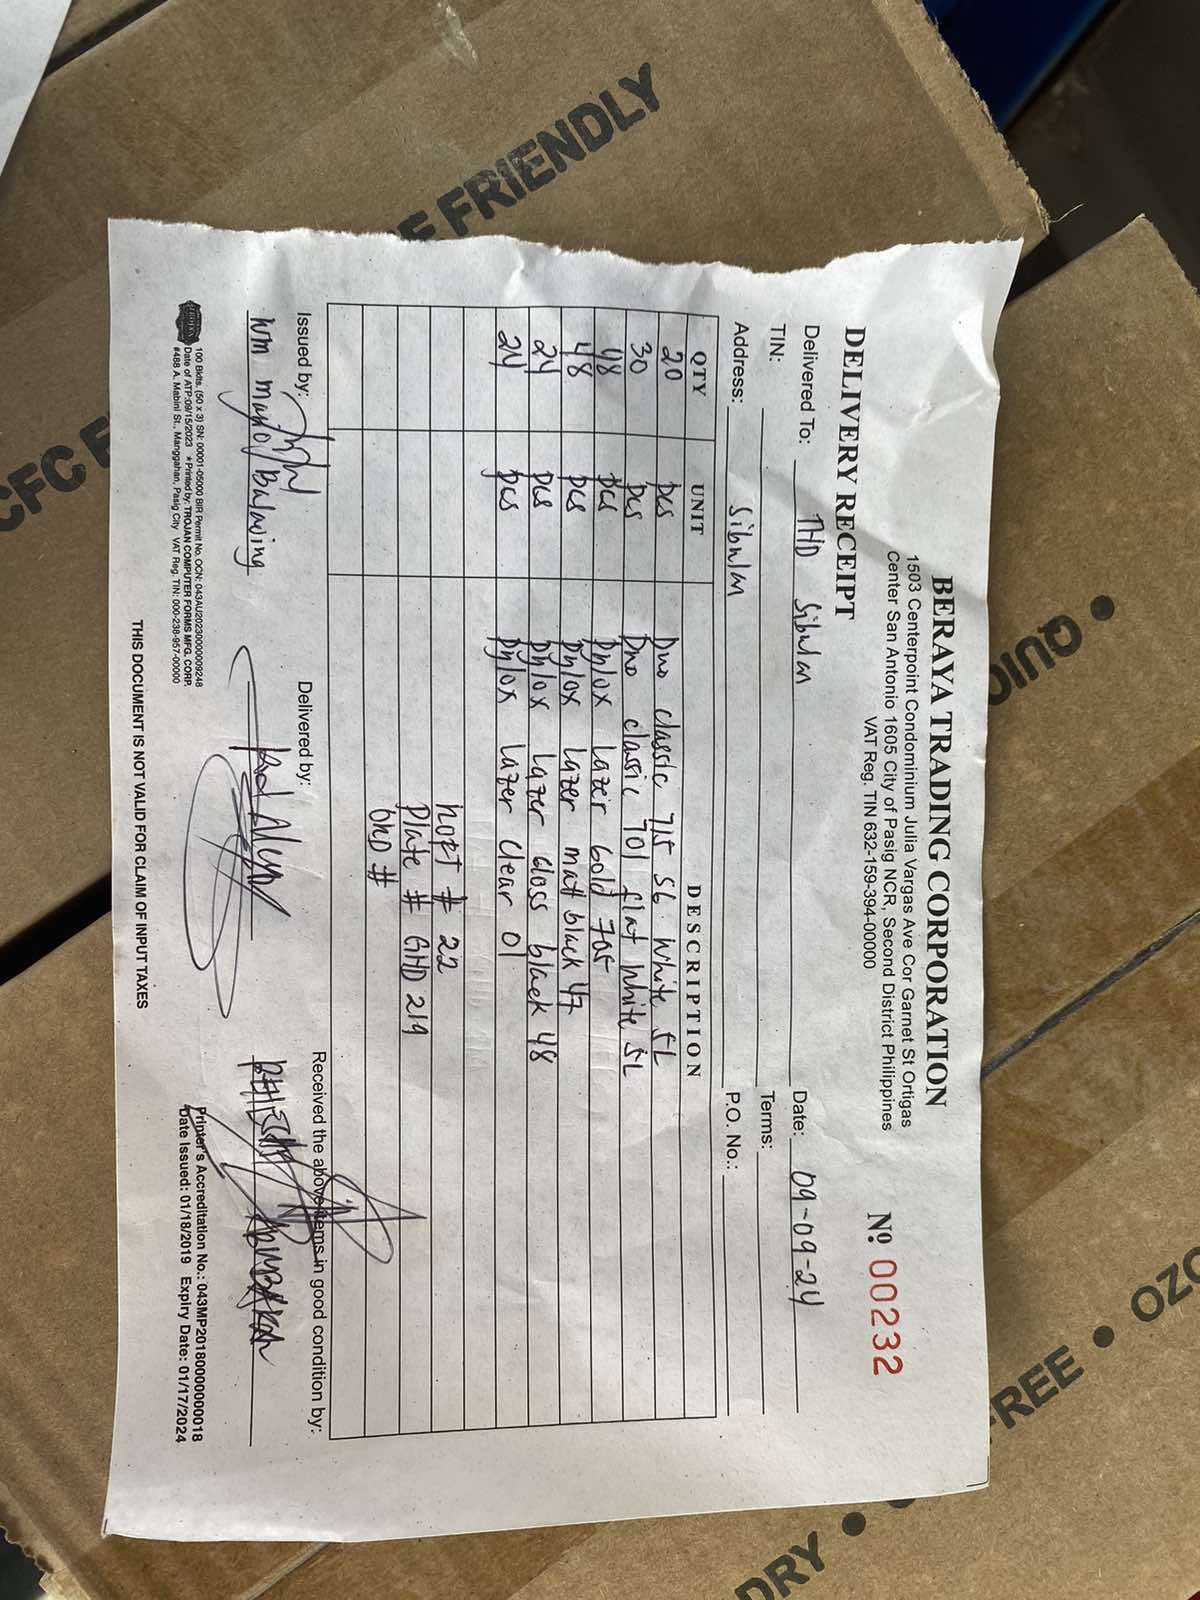 BERAYA TRADING CORPORATION
1503 Centerpoint Condominium Julia Vargas Ave Cor Garnet St Ortigas
Center San Antonio 1605 City of Pasig NCR, Second District Philippines
VAT Reg. TIN 632-159-394-00000
DELIVERY RECEIPT
Nº 00232
Delivered To: THD Sibulan Date: 09-09-24
TIN: Terms:
Address: Sibulan P.O. No.:
QTY UNIT DESCRIPTION
20 pcs Duo classic 715 SG White 5L
30 pcs Duo classic 701 flat White 5L
48 pcs Pylox Lazer Gold 705
48 pcs Pylox Lazer matt black 47
24 pcs Pylox Lazer Gloss black 48
24 pcs Pylox Lazer Clear 01
# 22
Plate # GHD 219
#
Issued by: Delivered by: Received the above items in good condition by:
100 Bklts. (50 x 3) SN: 00001-05000 BIR Permit No. OCN: 043AU20230000009248
Date of ATP:09/15/2023 * Printed by: TROJAN COMPUTER FORMS MFG. CORP.
#488 A. Mabini St., Manggahan, Pasig City VAT Reg. TIN: 000-238-957-00000
Printer's Accreditation No.: 043MP20180000000018
Date Issued: 01/18/2019 Expiry Date: 01/17/2024
THIS DOCUMENT IS NOT VALID FOR CLAIM OF INPUT TAXES
FRIENDLY
CFC
FREE • OZO
DRY •